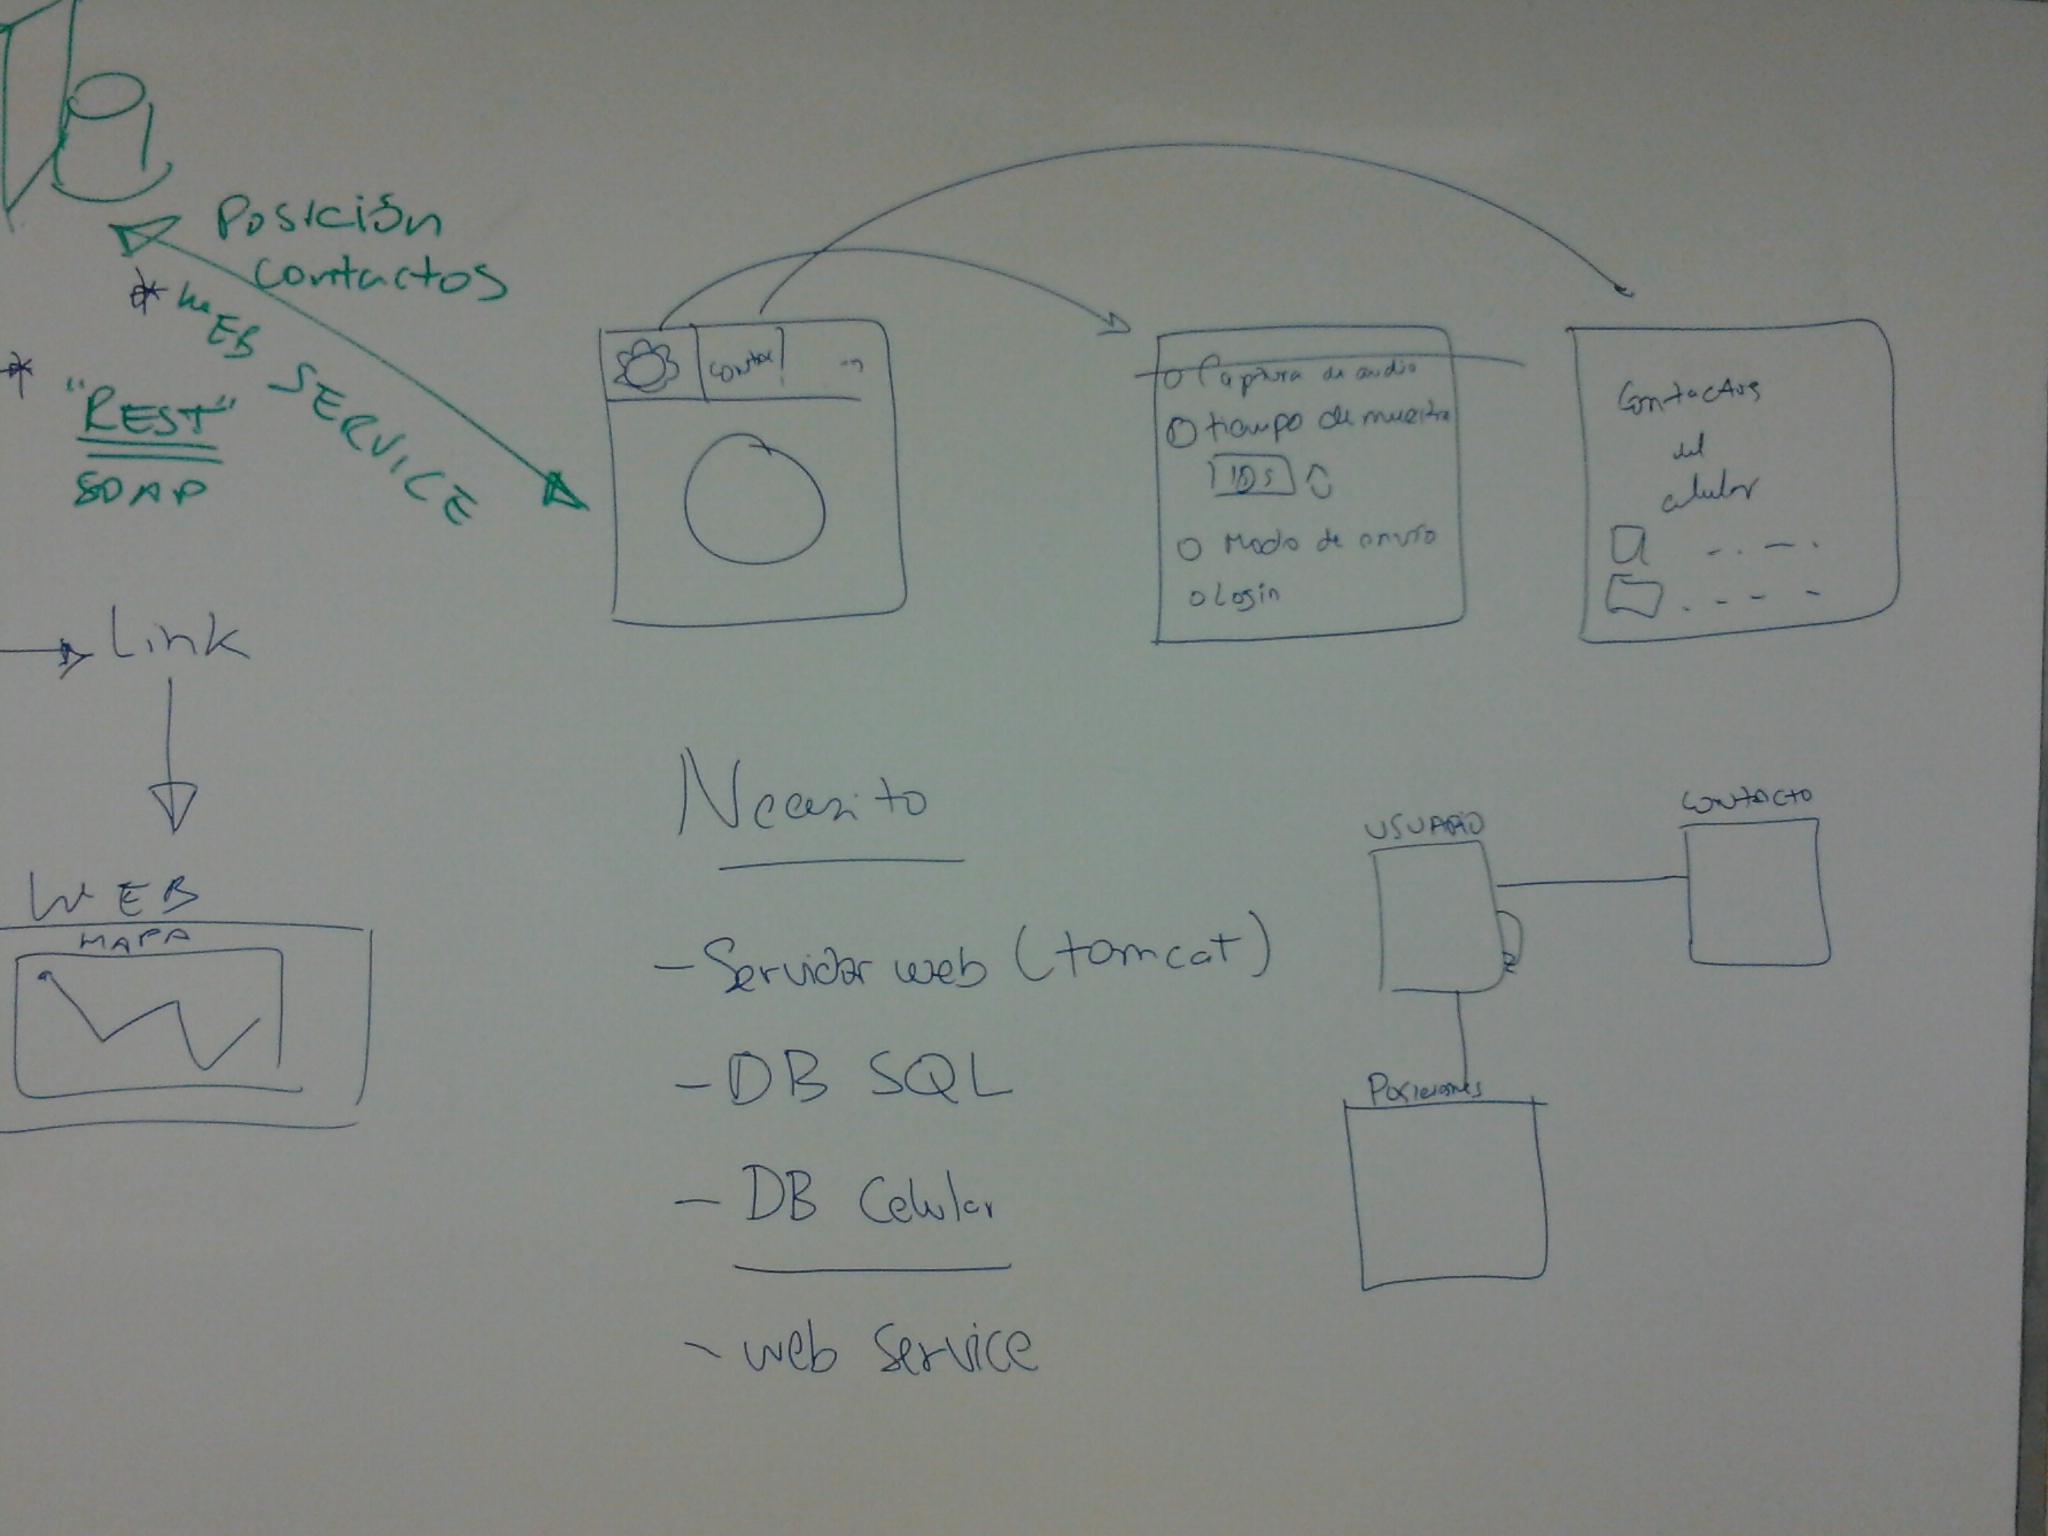 Posición
contactos
* WEB SERVICE
*
"REST"
SOAP
Captura de audio
tiempo de muestra
10s
Modo de envío
Login
Contactos
del
celular
Link
WEB
MAPA
Necesito
- Servidor web (tomcat)
- DB SQL
- DB Celular
- web service
USUARIO
CONTACTO
Posiciones